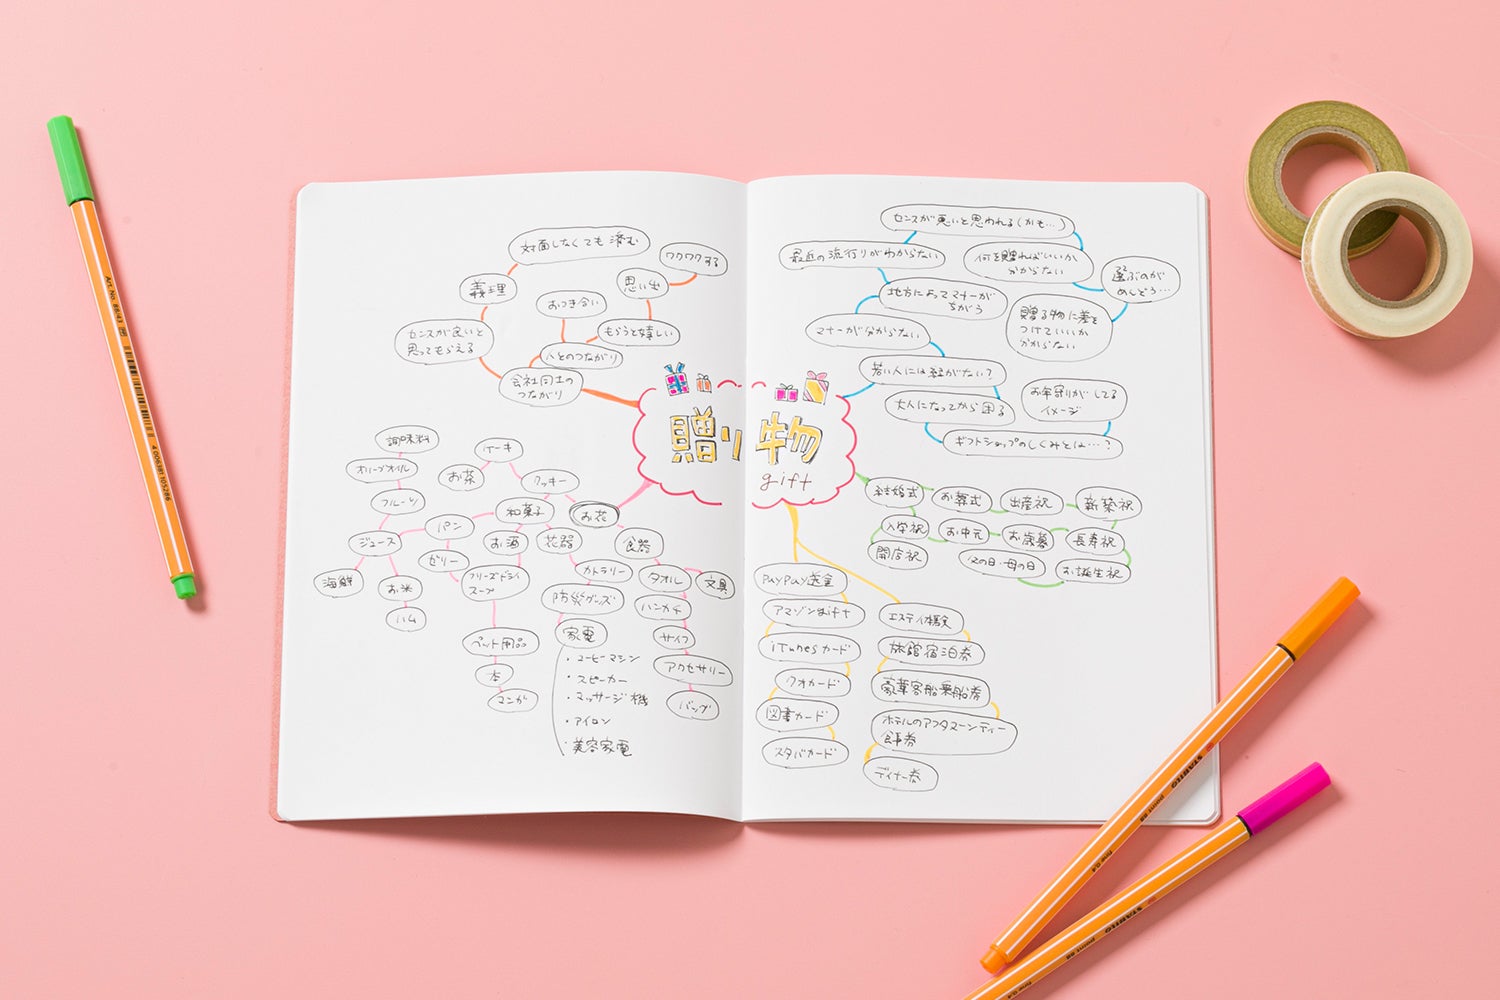 対面しなくても済む
ワクワクする
義理
思い出
おつき合い
センスが良いと
思ってもらえる
もらうと嬉しい
人とのつながり
会社同士の
つながり
贈り物
gift
調味料
オリーブオイル
フルーツ
ケーキ
お茶
クッキー
和菓子
お花
パン
ジュース
お酒
花器
食器
ゼリー
海鮮
お米
ハム
フリーズドライ
スープ
カトラリー
タオル
文具
防災グッズ
ハンカチ
家電
サイフ
ペット用品
アクセサリー
本
マンガ
バッグ
・コーヒーマシン
・スピーカー
・マッサージ機
・アイロン
・美容家電
センスが悪いと思われる(かも…)
最近の流行りがわからない
何を贈ればいいか
分からない
選ぶのが
めんどう…
地方によってマナーが
ちがう
贈る物に差を
つけていいか
分からない
マナーが分からない
若い人には縁がない?
お年寄りがしてる
イメージ
大人になってから困る
ギフトショップのしくみとは…?
結婚式
お葬式
出産祝
新築祝
入学祝
お中元
お歳暮
長寿祝
開店祝
父の日・母の日
お誕生祝
PayPay送金
アマゾンgift
iTunesカード
クオカード
図書カード
スタバカード
エステ体験
旅館宿泊券
豪華客船乗船券
ホテルのアフタヌーンティー
食事券
ディナー券
Art. No. 88/43
4 006381 105286
STABILO
point 88
fine 0,4
STABILO
point 88
fine 0,4